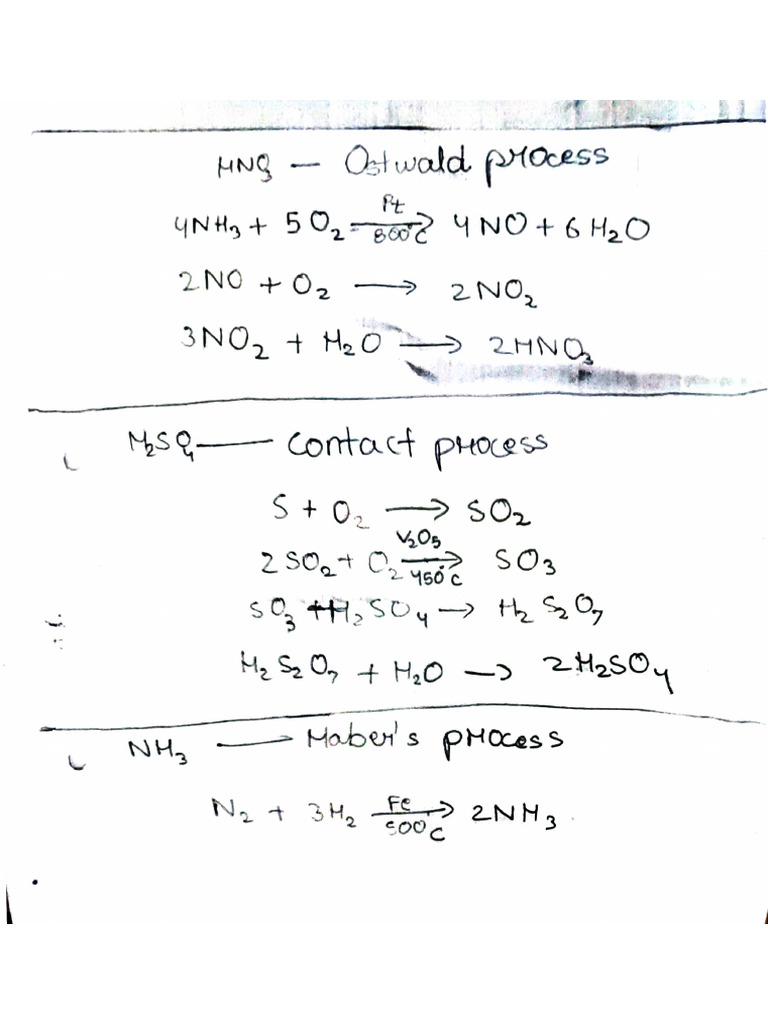 HNO3 — Ostwald process
4NH3 + 5O2 Pt 800°C → 4NO + 6H2O
2NO + O2 → 2NO2
3NO2 + H2O → 2HNO3
H2SO4 — Contact process
S + O2 → SO2
2SO2 + O2 V2O5 450°C → SO3
SO3 + H2SO4 → H2S2O7
H2S2O7 + H2O → 2H2SO4
NH3 — Haber's process
N2 + 3H2 Fe 500°C → 2NH3